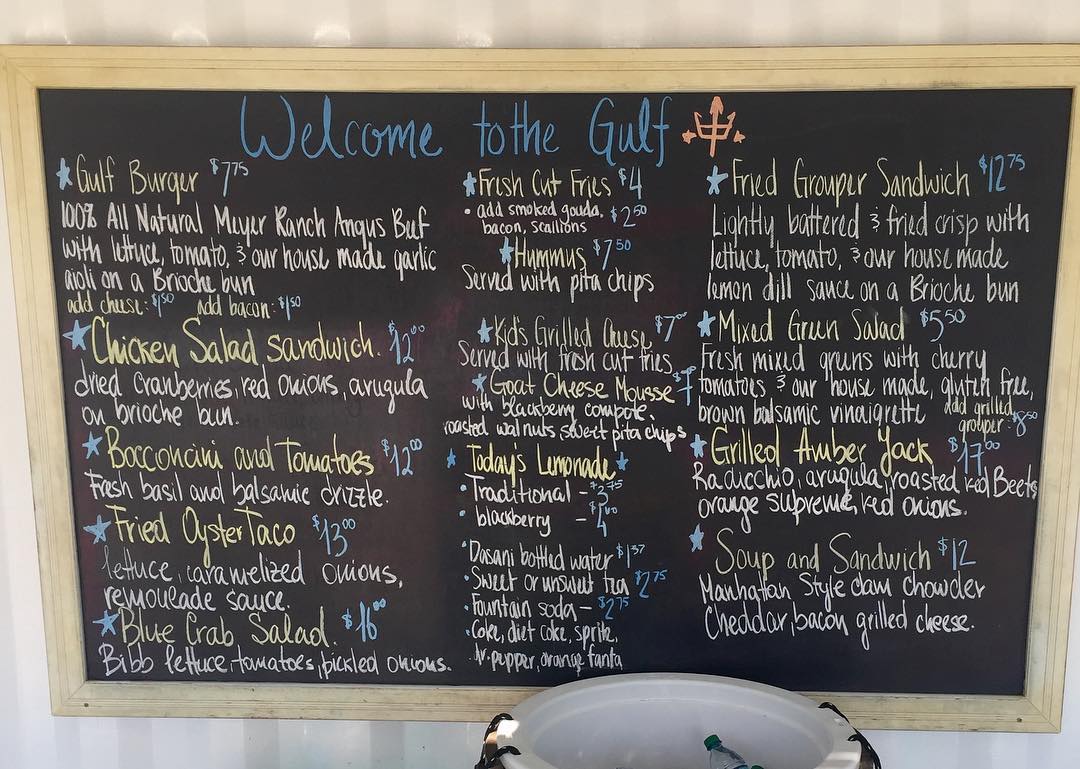 Welcome to the Gulf
Gulf Burger $7.75
100% All Natural Meyer Ranch Angus Beef
with lettuce, tomato, & our house made garlic
aioli on a Brioche bun
add cheese: $1.50 add bacon: $1.50
Chicken Salad Sandwich. $12.00
dried Cranberries, red onions, arugula
on brioche bun.
Bocconcini and Tomatoes $12.00
Fresh basil and balsamic drizzle.
Fried Oyster Taco $13.00
lettuce, caramelized onions,
remoulade sauce.
Blue Crab Salad. $16.00
Bibb lettuce, tomatoes, pickled onions.
Fresh Cut Fries $4
• add smoked gouda, $2.50
bacon, scallions
Hummus $7.50
Served with pita chips
Kid's Grilled Cheese $7.00
Served with fresh cut fries
Goat Cheese Mousse $7
with blackberry compote,
roasted walnuts sweet pita chips
Today's Lemonade
• Traditional -
• blackberry -
• Dasani bottled water $1.37
• Sweet or unsweet tea $2.75
• Fountain soda - $2.75
• Coke, diet coke, sprite,
dr. pepper, orange fanta
Fried Grouper Sandwich $12.75
Lightly battered & fried crisp with
lettuce, tomato, & our house made
lemon dill sauce on a Brioche bun
Mixed Green Salad $5.50
Fresh mixed greens with cherry
tomatoes & our house made, gluten free,
brown balsamic vinaigrette add grilled
grouper: $8.50
Grilled Amber Jack $17.00
Radicchio, arugula, roasted red Beets,
orange supreme, red onions.
Soup and Sandwich $12
Manhattan Style clam chowder
Cheddar, bacon grilled cheese.